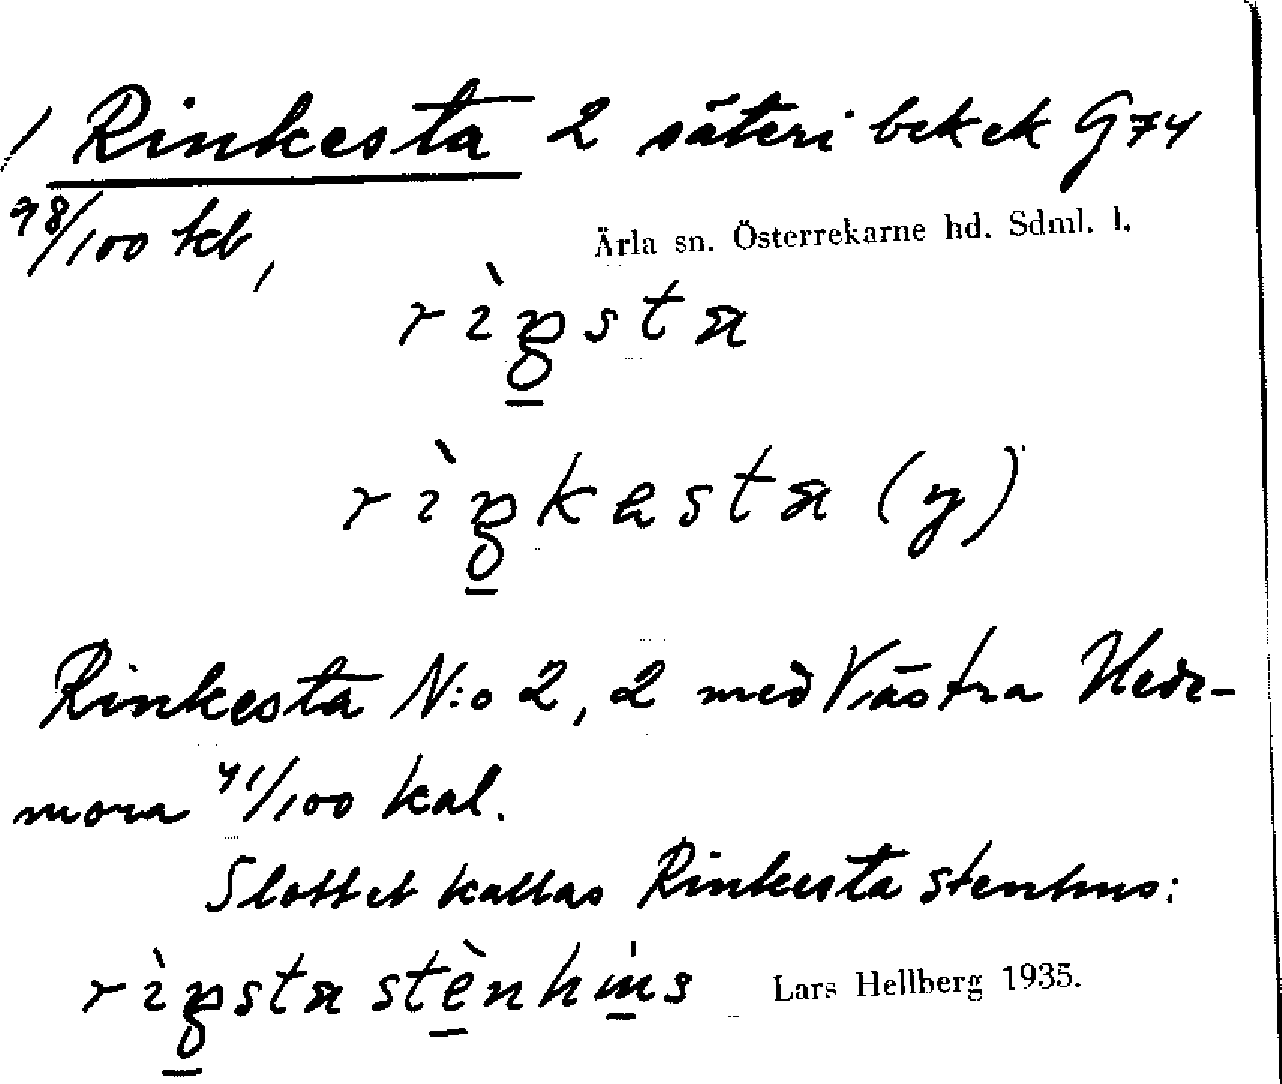 / Rinkesta 2 säteri bek ek G 74
98/100 kb,
Ärla sn. Österrekarne hd. Sdml. l.
rìŋsta
rìŋkesta (y)
Rinkesta N:o 2, 2 med Västra Hed-
mora 41/100 kal.
Slottet kallas Rinkesta stenhus:
rìŋsta stènhùs
Lars Hellberg 1935.